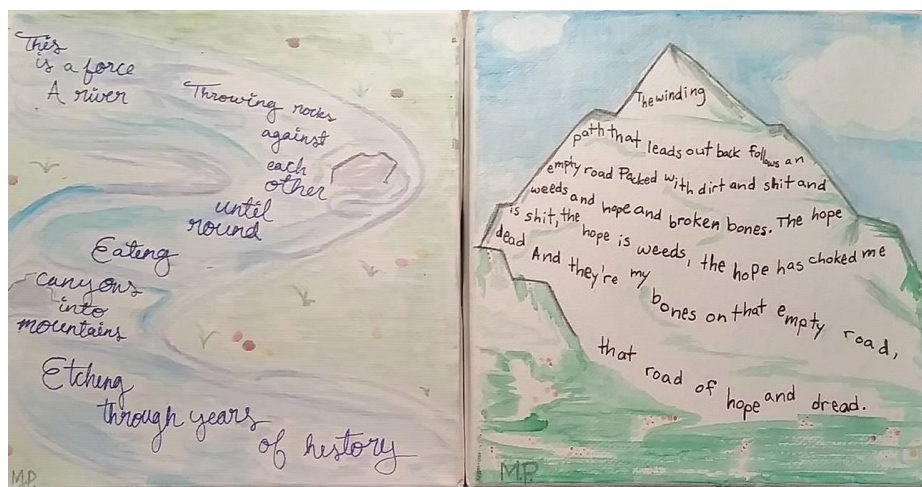 This
is a force
A river
Throwing rocks
against
each
other
until
round
Eating
canyons
into
mountains
Etching
through years
of history
M.P.
The winding
path that leads out back follows an
empty road Packed with dirt and shit and
weeds and hope and broken bones. The hope
is shit, the hope is weeds, the hope has choked me
dead And they're my bones on that empty road,
that road of hope and dread.
M.P.